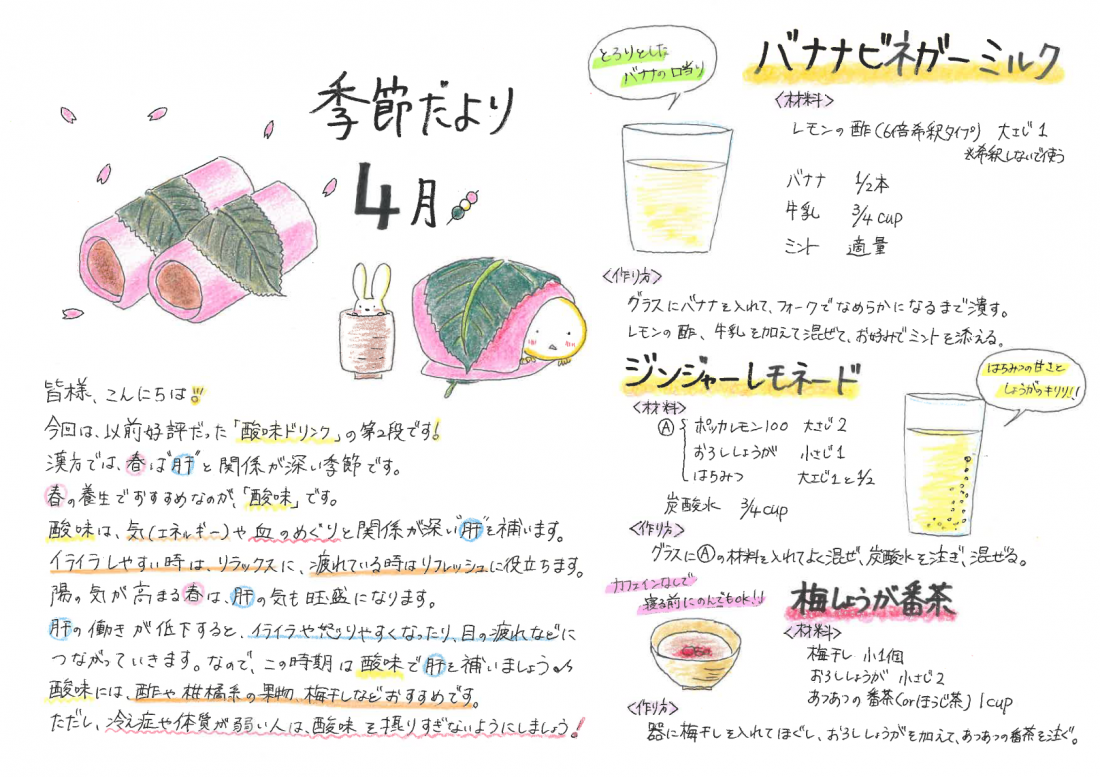 季節だより
4月
皆様、こんにちは!!
今回は、以前好評だった「酸味ドリンク」の第2段です!
漢方では、春は"肝"と関係が深い季節です。
春の養生でおすすめなのが、「酸味」です。
酸味は、気(エネルギー)や血のめぐりと関係が深い"肝"を補います。
イライラしやすい時は、リラックスに、疲れている時はリフレッシュに役立ちます。
陽の気が高まる春は、肝の気も旺盛になります。
肝の働きが低下すると、イライラや怒りやすくなったり、目の疲れなどに
つながっていきます。なので、この時期は酸味で肝を補いましょう
酸味には、酢や柑橘系の果物、梅干しなどおすすめです。
ただし、冷え症や体質が弱い人は、酸味を摂りすぎないようにしましょう!
とろりとした
バナナの口当り
バナナビネガーミルク
<材料>
レモンの酢(6倍希釈タイプ) 大さじ1
※希釈しないで使う
バナナ 1/2本
牛乳 3/4cup
ミント 適量
<作り方>
グラスにバナナを入れて、フォークでなめらかになるまで潰す。
レモンの酢、牛乳を加えて混ぜて、お好みでミントを添える。
ジンジャーレモネード
はちみつの甘さと
しょうがのキリリ!!
<材料>
Ⓐ ポッカレモン100 大さじ2
おろししょうが 小さじ1
はちみつ 大さじ1と1/2
炭酸水 3/4cup
<作り方>
グラスにⒶの材料を入れてよく混ぜ、炭酸水を注ぎ、混ぜる。
カフェインなしで
寝る前にのんでもOK!!
梅しょうが番茶
<材料>
梅干し 小1個
おろししょうが 小さじ2
あつあつの番茶(orほうじ茶) 1cup
<作り方>
器に梅干しを入れてほぐし、おろししょうがを加えて、あつあつの番茶を注ぐ。